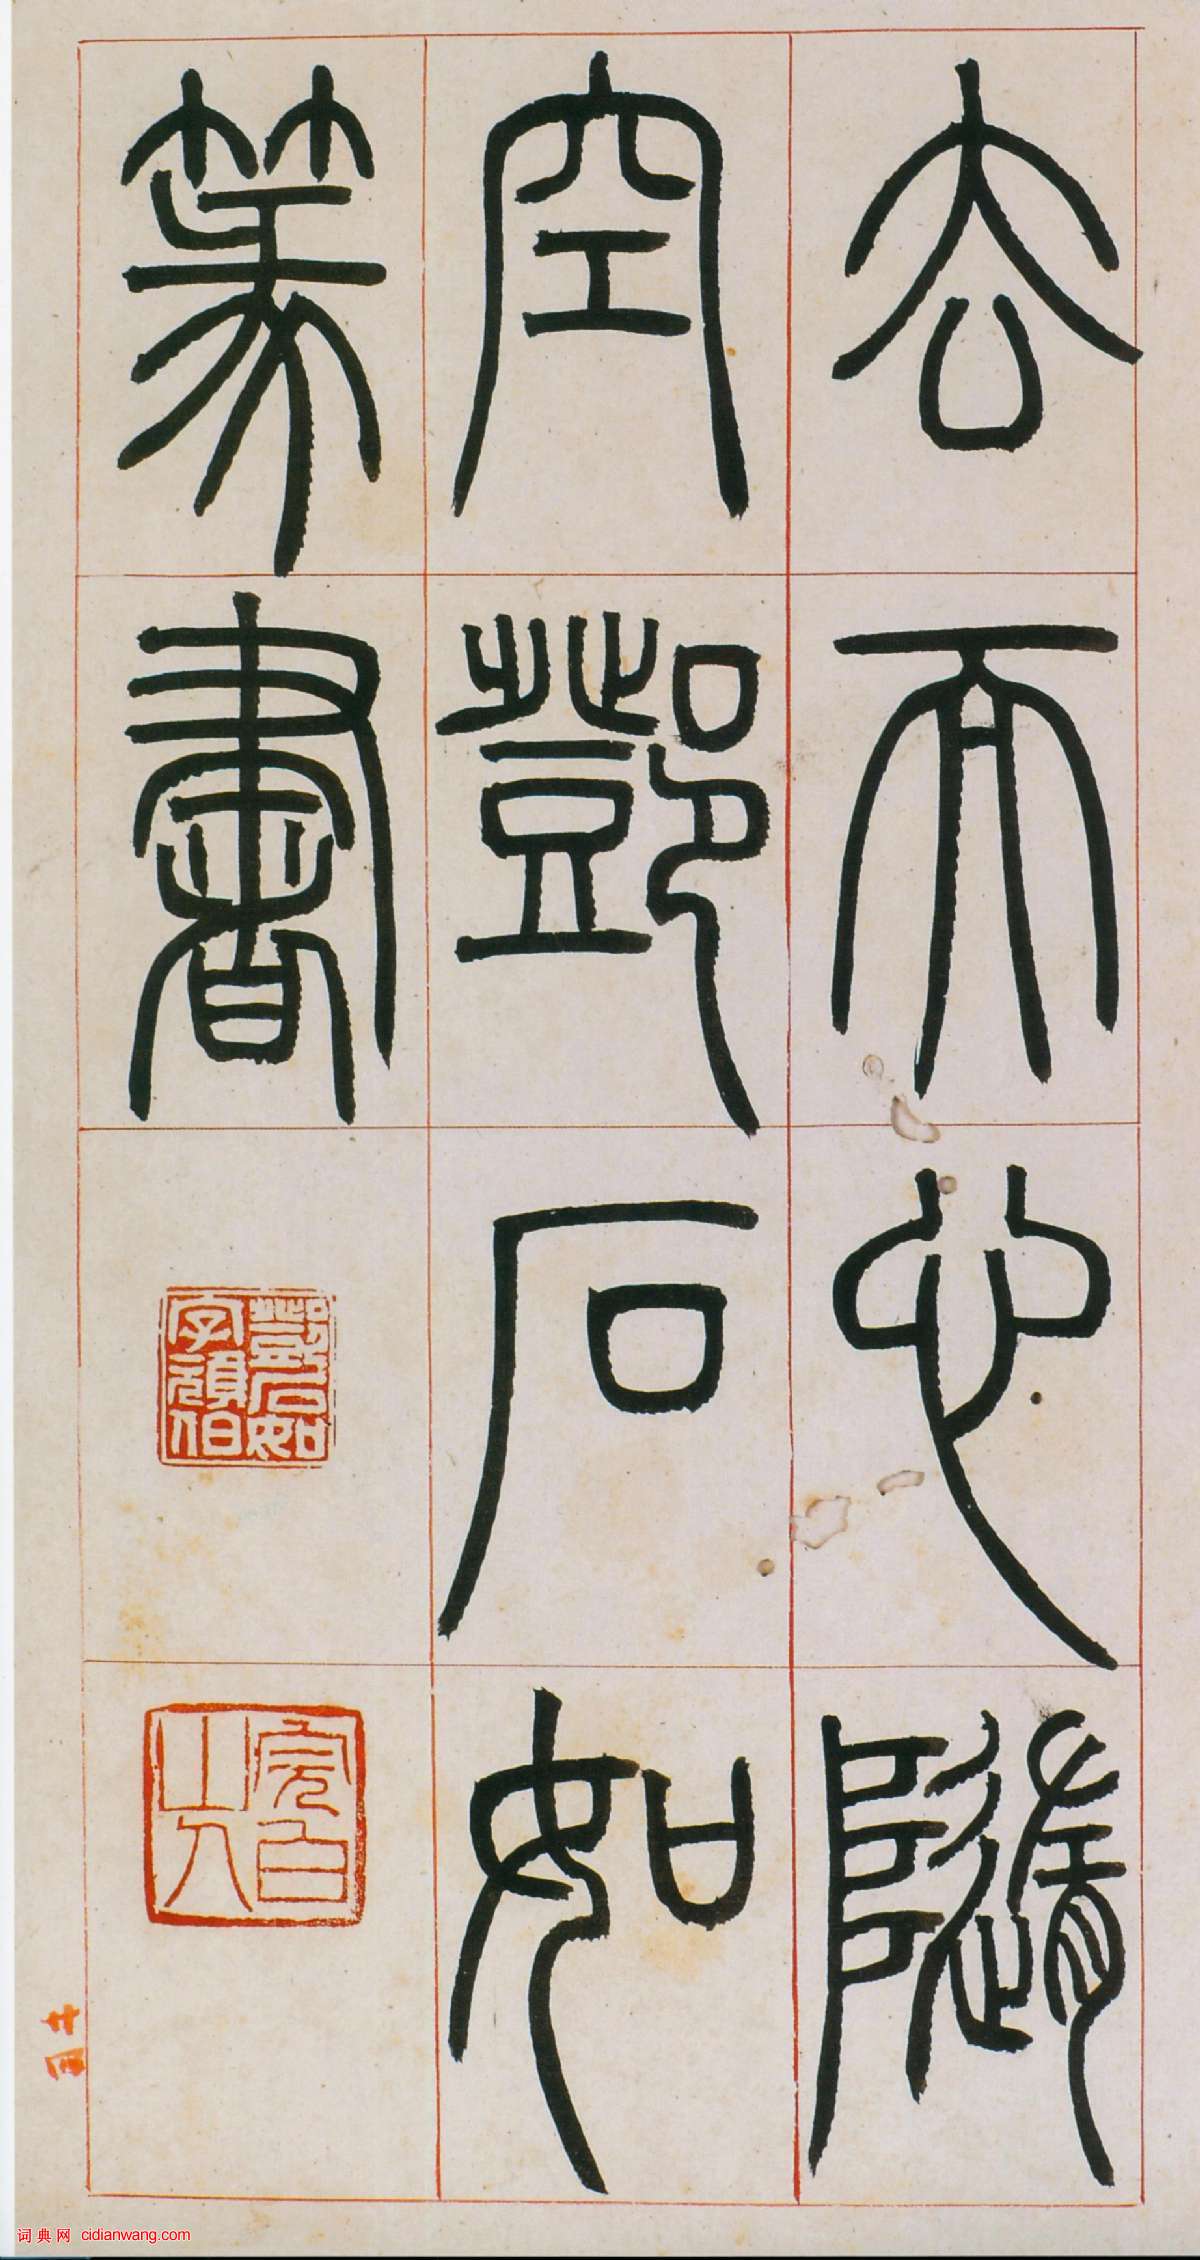 去而心隨
空鄧石如
篆書
鄧石如
字頑伯
完白
山人
词典网 cidianwang.com